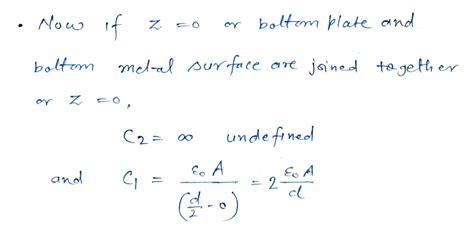 • Now if z = 0 or bottom plate and
bottom metal surface are joined together
or z = 0,
C₂ = ∞ undefined
and C₁ = ε₀ A / (d/2 - 0) = 2 ε₀ A / d